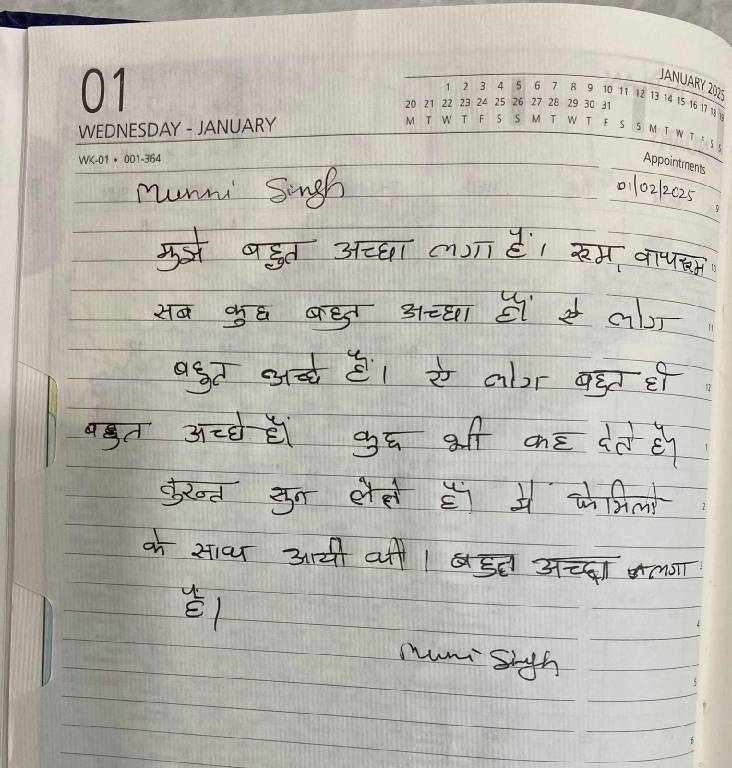 01
WEDNESDAY - JANUARY
WK-01 • 001-364
JANUARY 2025
1 2 3 4 5 6 7 8 9 10 11 12 13 14 15 16 17 18 19
20 21 22 23 24 25 26 27 28 29 30 31
M T W T F S S M T W T F S S M T W T F S S
Appointments
01/02/2025
Munni Singh
मुझे बहुत अच्छा लगा हैं। रूम, वाथरूम
सब कुछ बहुत अच्छा हैं ऐ लोग
बहुत अच्छे हैं। ऐ लोग बहुत ही
बहुत अच्छे हैं। कुछ भी कह देते हैं
तुरन्त सुन लेते हैं। मे फेमिली
के साथ आयी थी। बहुत अच्छा लगा
हैं।
Munni Singh
9
10
11
12
1
2
3
4
5
6